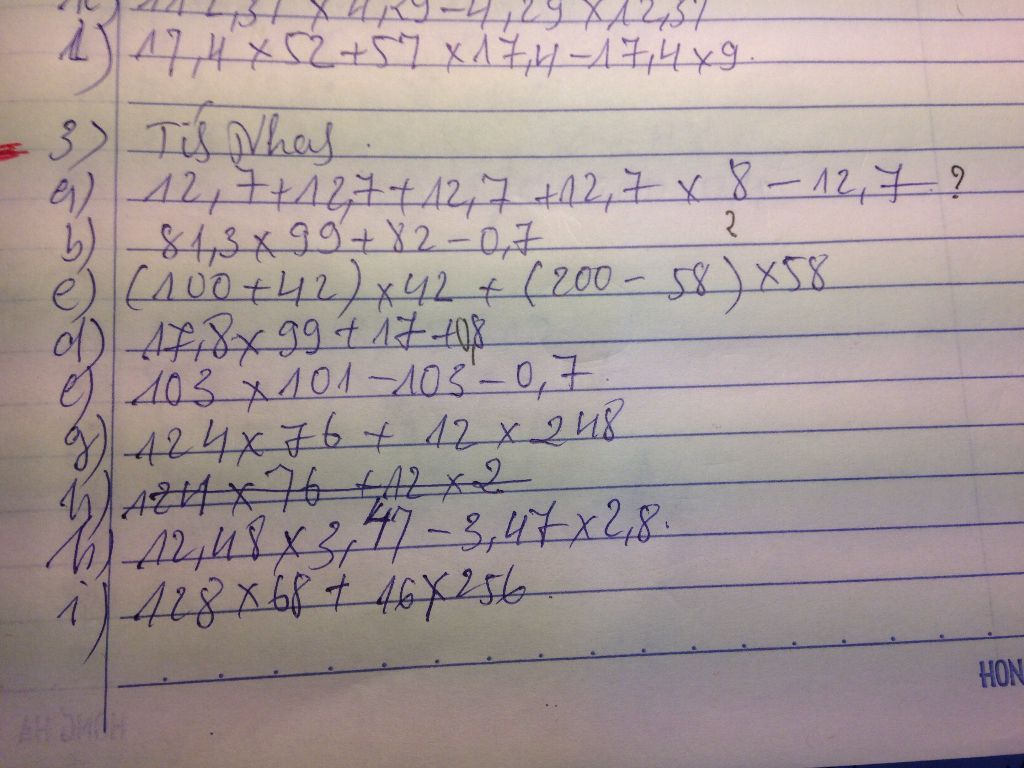 112,37 × 4,29 - 4,29 × 12,37
l) 17,4 × 52 + 57 × 17,4 - 17,4 × 9.
3) Tís Nhas.
a) 12,7 + 12,7 + 12,7 + 12,7 × 8 - 12,7 ?
b) 81,3 × 99 + 82 - 0,7 ?
c) (100 + 42) × 42 + (200 - 58) × 58
d) 17,8 × 99 + 17 + 0,8
e) 103 × 101 - 103 - 0,7.
g) 124 × 76 + 12 × 248
h) 124 × 76 + 12 × 2
h) 12,48 × 3,47 - 3,47 × 2,8.
i) 128 × 68 + 16 × 256.
HON
HONG HA